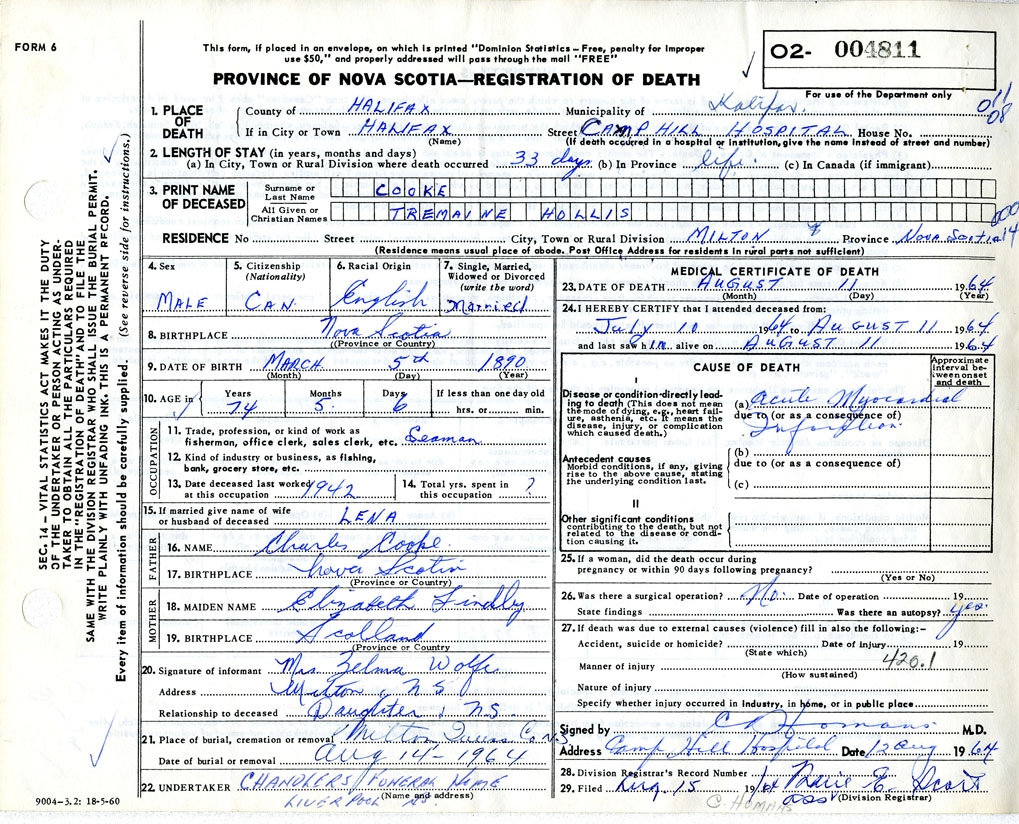 FORM 6
This form, if placed in an envelope, on which is printed "Dominion Statistics – Free, penalty for improper
use $50," and properly addressed will pass through the mail "FREE"
PROVINCE OF NOVA SCOTIA—REGISTRATION OF DEATH
02- 004811
For use of the Department only
011
08
SEC. 14 – VITAL STATISTICS ACT MAKES IT THE DUTY
OF THE UNDERTAKER OR PERSON ACTING AS UNDER-
TAKER TO OBTAIN ALL THE PARTICULARS REQUIRED
IN THE "REGISTRATION OF DEATH" AND TO FILE THE
SAME WITH THE DIVISION REGISTRAR WHO SHALL ISSUE THE BURIAL PERMIT.
WRITE PLAINLY WITH UNFADING INK. THIS IS A PERMANENT RECORD.
Every item of information should be carefully supplied. (See reverse side for instructions.)
1. PLACE OF DEATH County of HALIFAX Municipality of Halifax
If in City or Town HALIFAX (Name) Street CAMP HILL HOSPITAL House No.
(If death occurred in a hospital or institution, give the name instead of street and number)
2. LENGTH OF STAY (in years, months and days)
(a) In City, Town or Rural Division where death occurred 33 days (b) In Province life. (c) In Canada (if immigrant)
3. PRINT NAME OF DECEASED Surname or Last Name COOKE
All Given or Christian Names TREMAINE HOLLIS
000
14
RESIDENCE No Street City, Town or Rural Division MILTON Province NOVA SCOTIA
(Residence means usual place of abode. Post Office Address for residents in rural parts not sufficient)
4. Sex MALE
5. Citizenship (Nationality) CAN.
6. Racial Origin English
7. Single, Married, Widowed or Divorced (write the word) Married
8. BIRTHPLACE Nova Scotia
(Province or Country)
9. DATE OF BIRTH MARCH 5th 1890
(Month) (Day) (Year)
10. AGE in Years 74 Months 5 Days 6 If less than one day old hrs. or min.
OCCUPATION
11. Trade, profession, or kind of work as
fisherman, office clerk, sales clerk, etc. Seaman
12. Kind of industry or business, as fishing,
bank, grocery store, etc.
13. Date deceased last worked at this occupation 1942
14. Total yrs. spent in this occupation ?
15. If married give name of wife
or husband of deceased LENA
FATHER
16. NAME Charles Cooke
17. BIRTHPLACE Nova Scotia
(Province or Country)
MOTHER
18. MAIDEN NAME Elizabeth Findly
19. BIRTHPLACE Scotland
(Province or Country)
20. Signature of informant Mrs. Zelma Wolfe
Address Milton, N.S
Relationship to deceased Daughter, N.S.
21. Place of burial, cremation or removal Milton Queens Co N.S
Date of burial or removal Aug 14 - 1964
22. UNDERTAKER CHANDLERS FUNERAL HOME
(Name and address)
LIVERPOOL NS
9004–3.2: 18-5-60
MEDICAL CERTIFICATE OF DEATH
23. DATE OF DEATH AUGUST 11 1964
(Month) (Day) (Year)
24. I HEREBY CERTIFY that I attended deceased from:
July 10 1964 to AUGUST 11 1964
and last saw him alive on AUGUST 11 1964
CAUSE OF DEATH
Approximate interval between onset and death
I
Disease or condition directly leading to death (This does not mean the mode of dying, e.g., heart failure, asthenia, etc. It means the disease, injury, or complication which caused death.)
(a) Acute Myocardial
due to (or as a consequence of)
Infarction
Antecedent causes
Morbid conditions, if any, giving rise to the above cause, stating the underlying condition last.
(b)
due to (or as a consequence of)
(c)
II
Other significant conditions
contributing to the death, but not related to the disease or condition causing it.
25. If a woman, did the death occur during
pregnancy or within 90 days following pregnancy?
(Yes or No)
26. Was there a surgical operation? No. Date of operation 19
State findings Was there an autopsy? yes.
27. If death was due to external causes (violence) fill in also the following:–
Accident, suicide or homicide? Date of injury 19
(State which)
420.1
Manner of injury
(How sustained)
Nature of injury
Specify whether injury occurred in industry, in home, or in public place
Signed by C Homans M.D.
Address Camp Hill Hospital Date 12 Aug 1964
28. Division Registrar's Record Number
29. Filed Aug. 15 1964 E. Scott
(Division Registrar)
C. HOMANS